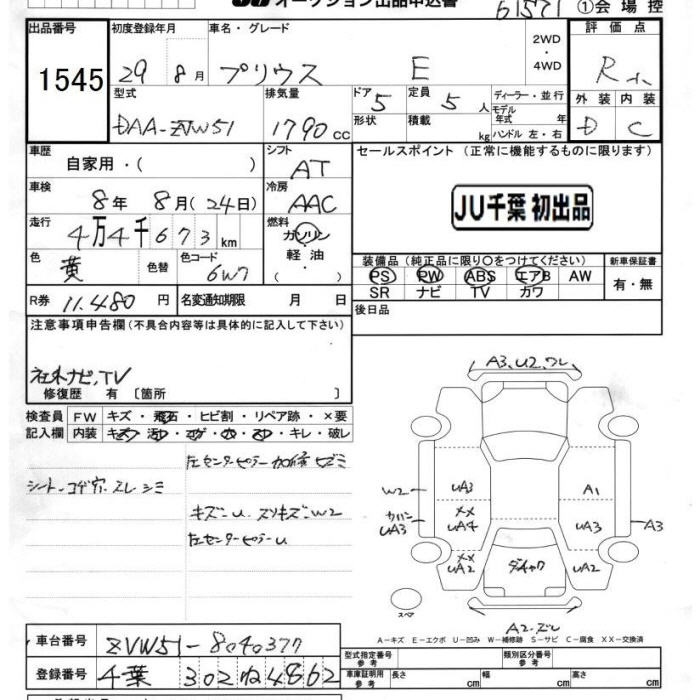 オークション出品申込書
61571 ①会場控
出品番号 初度登録年月 車名・グレード 2WD・4WD 評価点
1545 29 8月 プリウス E R
型式 排気量 ドア 5 定員 5人 ディーラー・並行 外装 内装
DAA-ZVW51 1790cc 形状 積載 kg モデル年式 年 ハンドル 左・右 D C
車歴 自家用・( ) シフト AT セールスポイント (正常に機能するものに限ります)
車検 8年 8月(24日) 冷房 AAC JU千葉 初出品
走行 4万4千673km 燃料 ガソリン
色 黄 色替 色コード 6W7 軽油・( ) 装備品(純正品に限り○をつけてください) 新車保証書
PS PW ABS エアB AW 有・無
SR ナビ TV カワ
R券 11,480円 名変通知期限 月 日 後日品
注意事項申告欄(不具合内容等は具体的に記入して下さい)
社外ナビ,TV
修復歴 有 〔箇所 〕
検査員 FW キズ・飛石・ヒビ割・リペア跡・×要
記入欄 内装 キズ・汚レ・コゲ・穴・スレ・キレ・破レ
左センターピラー加修ヒズミ
シート-コゲ穴.スレ.シミ
キズ-U.スリキズ-W2
左センターピラーU
A3,U2,ワレ
W2 UA3 A1
UA3 XX UA4 UA3 A3
XX UA2 UA2
スペア
A2-ズレ
A-キズ E-エクボ U-凹み W-補修跡 S-サビ C-腐食 XX-交換済
車台番号 ZVW51-8040377
登録番号 千葉 302 ね 4862
型式指定番号 参考 類別区分番号 参考
車庫証明用 参考 長さ 幅 高さ